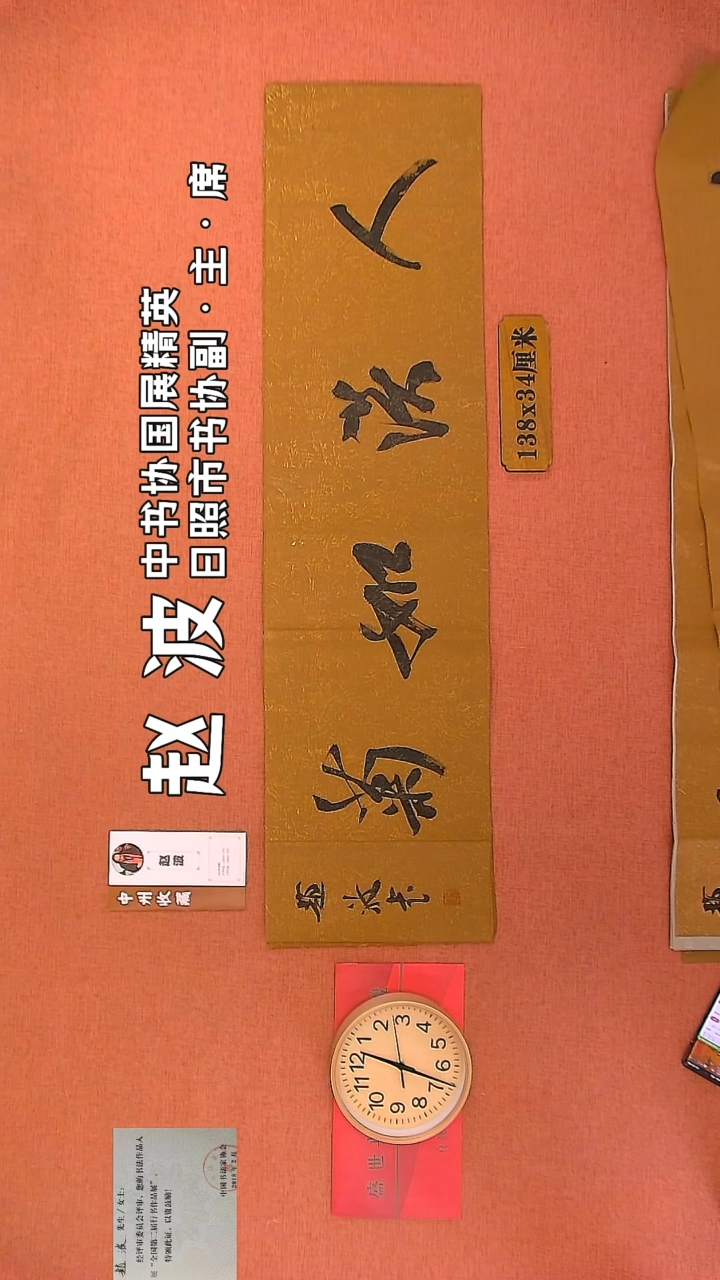 赵波
中书协国展精英
日照市书协副·主·席
赵波
中州收藏
人淡如菊
赵波书
138x34厘米
盛世
12
1
2
3
4
5
6
7
8
9
10
11
先生/女士:
经评审委员会评审,您的书法作品入
展“全国第二届行书作品展”。
特颁此证,以资鼓励!
中国书法家协会